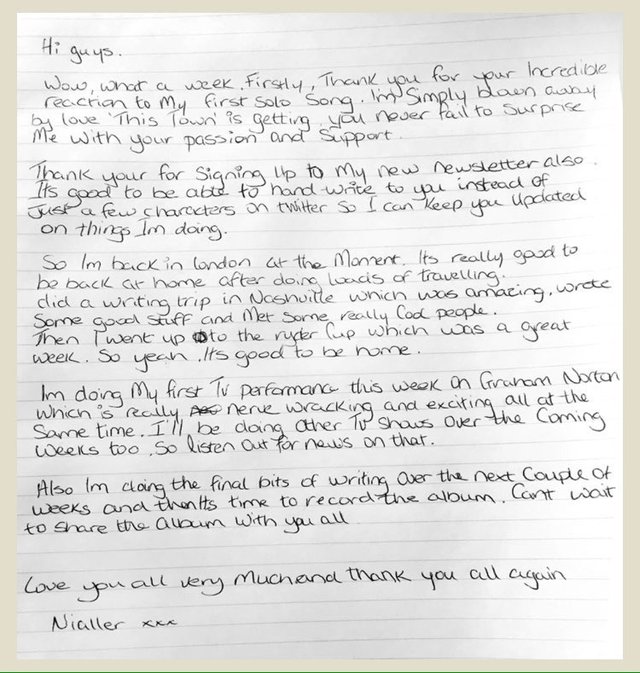 Hi guys.
Wow, what a week. Firstly, Thank you for your Incredible
reaction to My first solo song. I'm Simply blown away
by love 'This Town' is getting, you never fail to surprise
Me with your passion and Support.
Thank your for signing Up to My new newsletter also.
Its good to be able to hand write to you instead of
Just a few characters on twitter So I can keep you Updated
on things Im doing.
So Im back in london at the Moment. Its really good to
be back at home after doing loads of travelling.
did a writing trip in Nashville which was amazing, wrote
Some good stuff and Met Some really Cool people.
Then I went up to the ryder Cup which was a great
week. So yeah. Its good to be home.
Im doing My first Tv performance this week on Graham Norton
which is really nerve wracking and exciting all at the
Same time. I'll be doing other Tv shows over the Coming
weeks too. So listen out for news on that.
Also Im doing the final bits of writing Over the next Couple of
weeks and then Its time to record the album. Cant wait
to share the album with you all
Love you all very Much and thank you all again
Nialler xxx